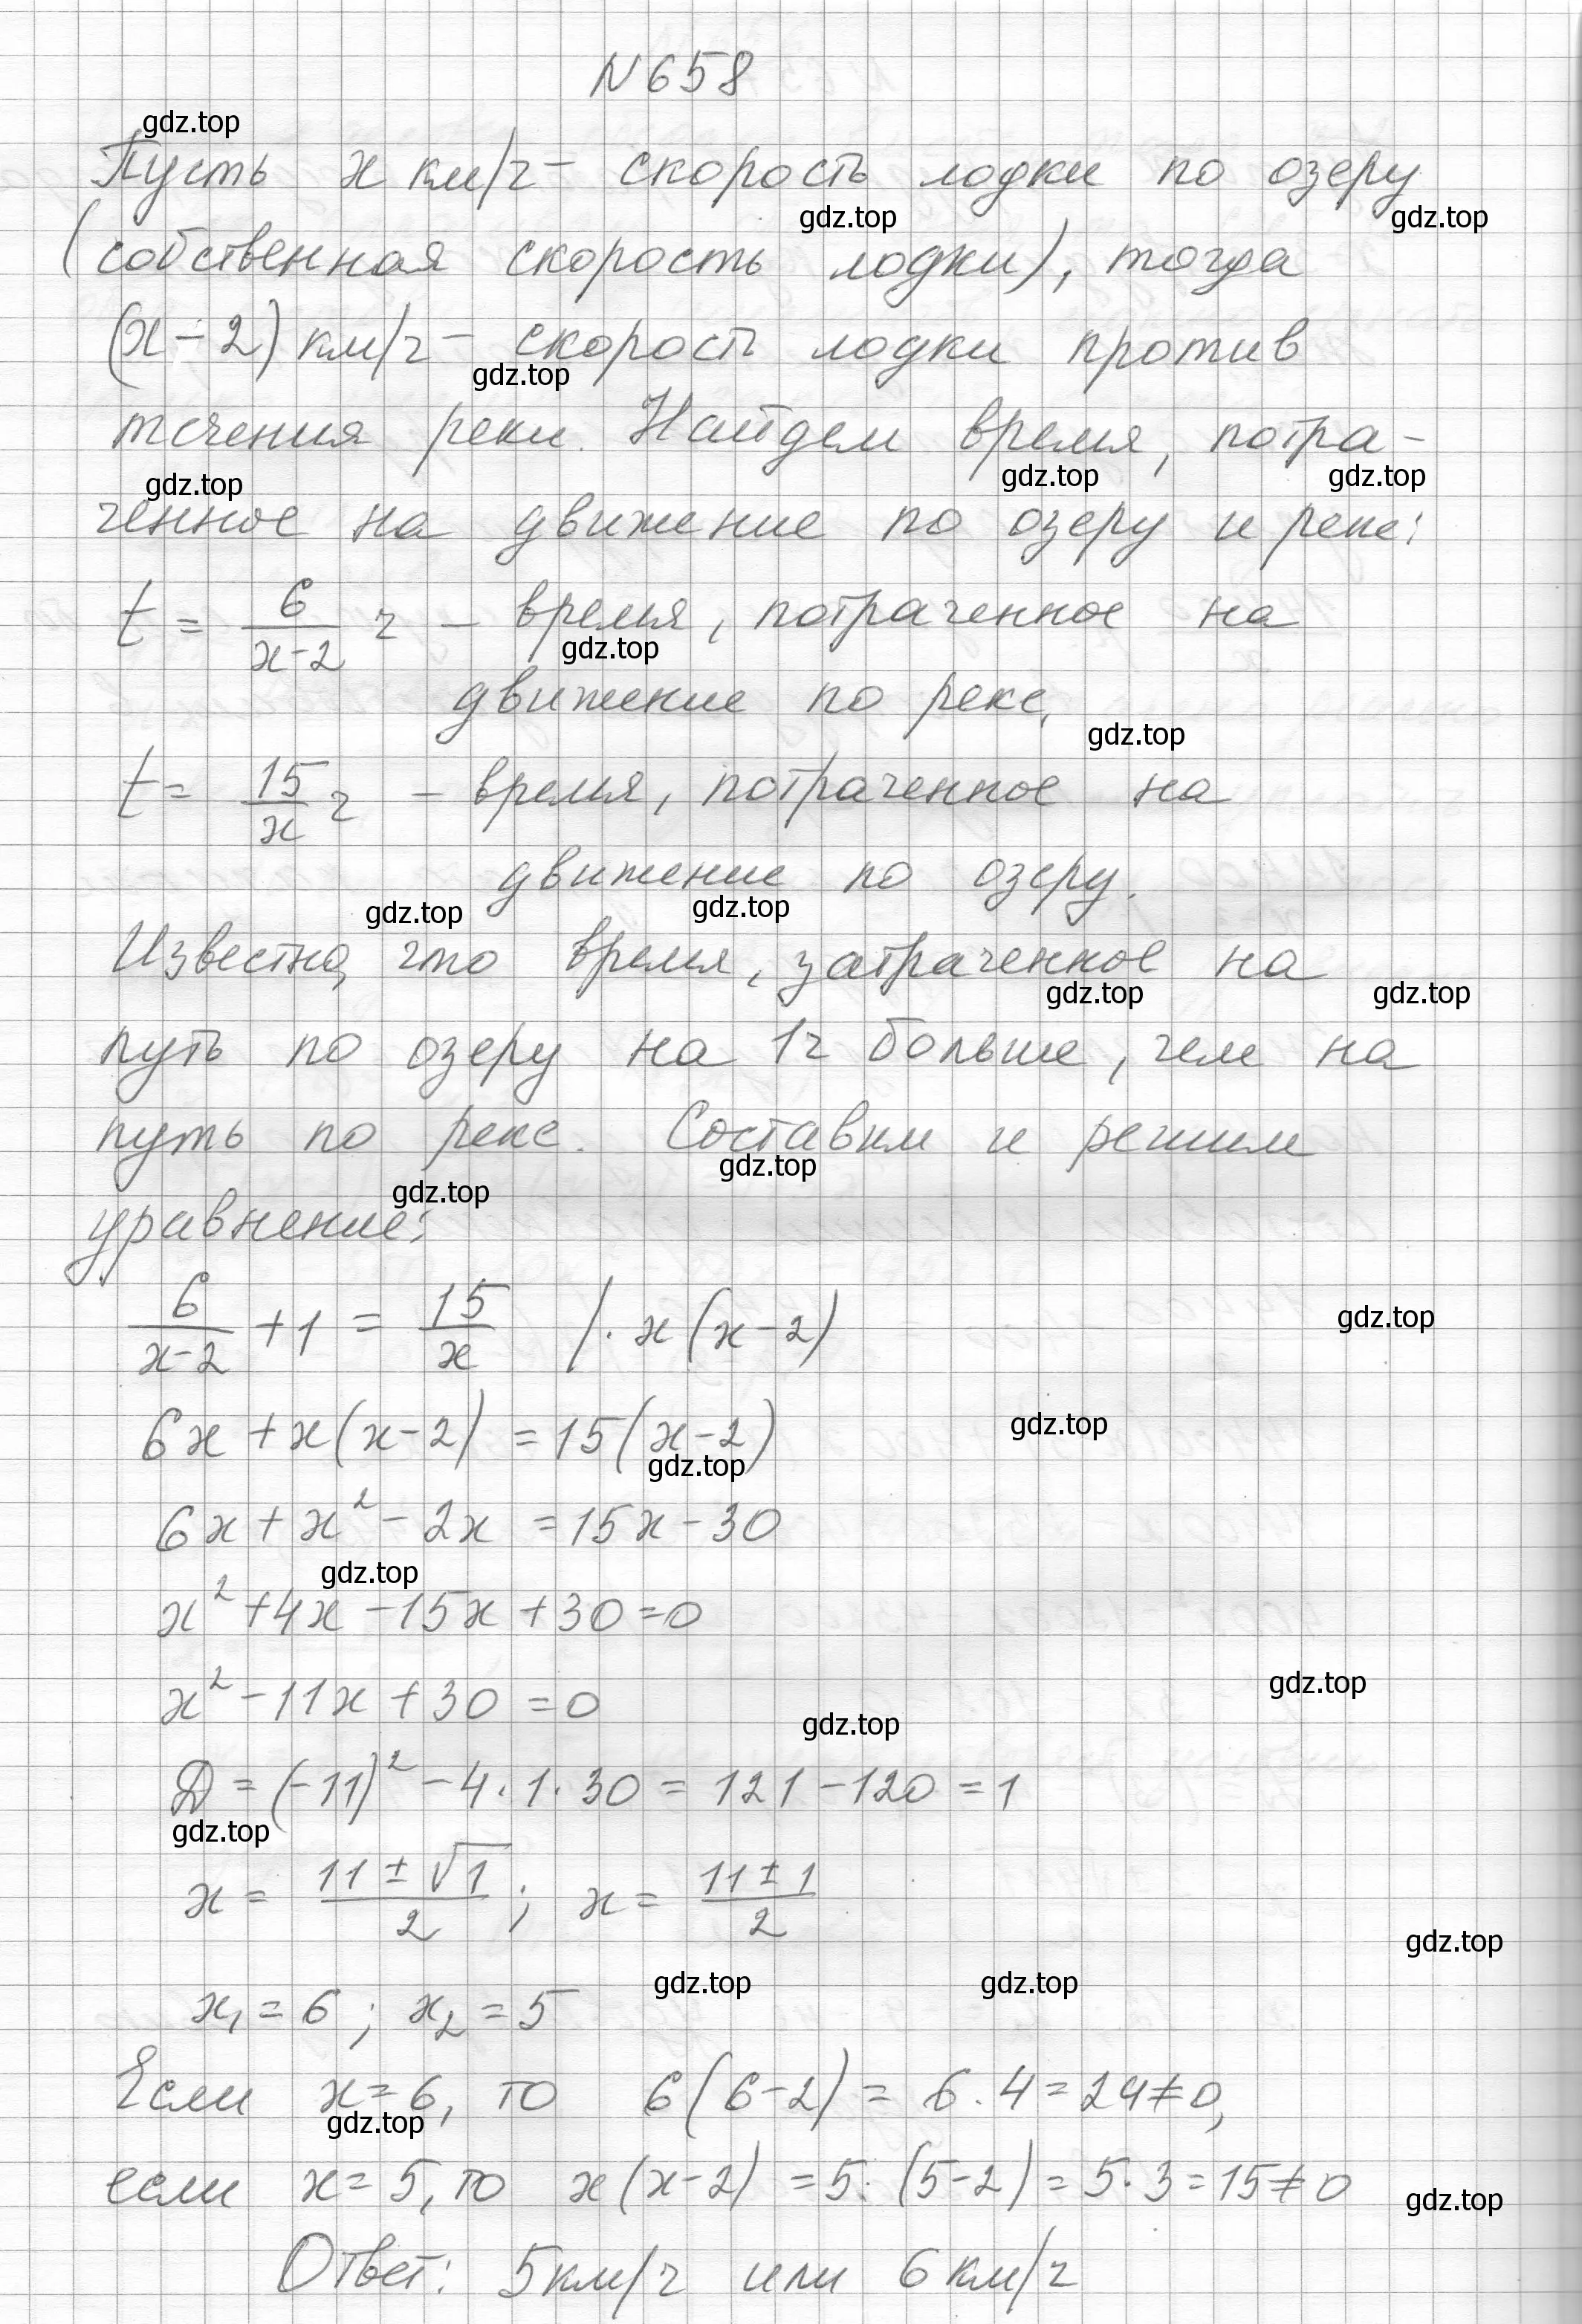 N 658
gdz.top
Пусть x км/ч – скорость лодки по озеру
gdz.top gdz.top
(собственная скорость лодки), тогда
(x - 2) км/ч – скорость лодки против
gdz.top
течения реки. Найдем время, потра-
gdz.top gdz.top gdz.top
ченное на движение по озеру и реке:
t = 6/(x-2) ч – время, потраченное на
gdz.top
движение по реке,
gdz.top
t = 15/x ч – время, потраченное на
движение по озеру.
gdz.top gdz.top
Известно, что время, затраченное на
gdz.top gdz.top
путь по озеру на 1ч больше, чем на
путь по реке. Составим и решим
gdz.top gdz.top
уравнение:
6/(x-2) + 1 = 15/x /· x(x-2)
gdz.top
6x + x(x-2) = 15(x-2)
gdz.top gdz.top
6x + x² - 2x = 15x - 30
gdz.top
x² + 4x - 15x + 30 = 0
x² - 11x + 30 = 0
gdz.top gdz.top
D = (-11)² - 4·1·30 = 121 - 120 = 1
gdz.top
x = (11 ± √1)/2 ; x = (11 ± 1)/2
gdz.top
gdz.top gdz.top
x₁ = 6 ; x₂ = 5
Если x = 6, то 6(6-2) = 6·4 = 24 ≠ 0,
gdz.top
если x = 5, то x(x-2) = 5·(5-2) = 5·3 = 15 ≠ 0
gdz.top
Ответ: 5км/ч или 6 км/ч